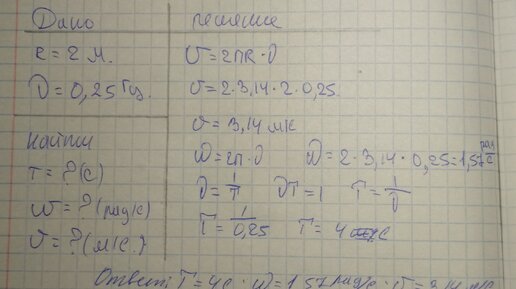 Дано
R = 2 м.
ν = 0,25 Гц.
Найти
T = ? (с)
ω = ? (рад/с)
υ = ? (м/с.)
решение
υ = 2πR · ν
υ = 2 · 3,14 · 2 · 0,25.
υ = 3,14 м/с
ω = 2π · ν ω = 2 · 3,14 · 0,25 = 1,57 рад/с
ν = 1/T νT = 1 T = 1/ν
T = 1/0,25 T = 4 с
Ответ: T = 4с · ω = 1,57 рад/с · υ = 3,14 м/с